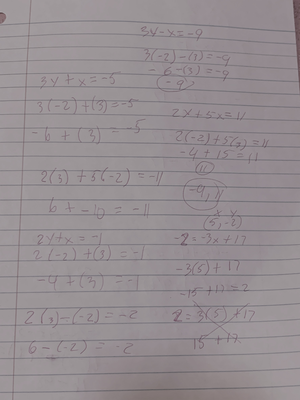 3y-x=-9
3(-2)-(3)=-9
-6-(3)=-9
-9
3y+x=-5
3(-2)+(3)=-5
-6+(3)=-5
2(3)+5(-2)=-11
6+-10=-11
2y+x=-1
2(-2)+(3)=-1
-4+(3)=-1
2(3)-(-2)=-2
6-(-2)=-2
2x+5x=11
2(-2)+5(3)=11
-4+15=11
11
-4,11
x y
(5,-2)
-2=-3x+17
-3(5)+17
-15+17=2
2=3(5)+17
15+17